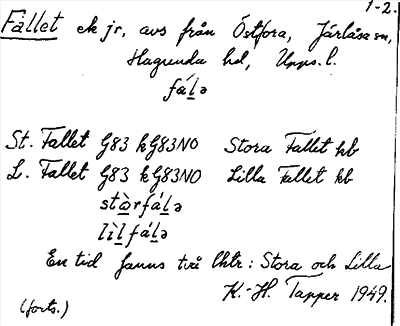 1-2.
Fallet ek jr, avs från Östfora, Järlåsa sn,
Hagunda hd, Upps. l.
fáḷə
St. Fallet G83 kG83NO Stora Fallet kb
L. Fallet G83 kG83NO Lilla Fallet kb
stò̱rfáḷə
lìḻfáḷə
En tid fanns två lhtr: Stora och Lilla
K.-H. Tapper 1949.
(forts.)